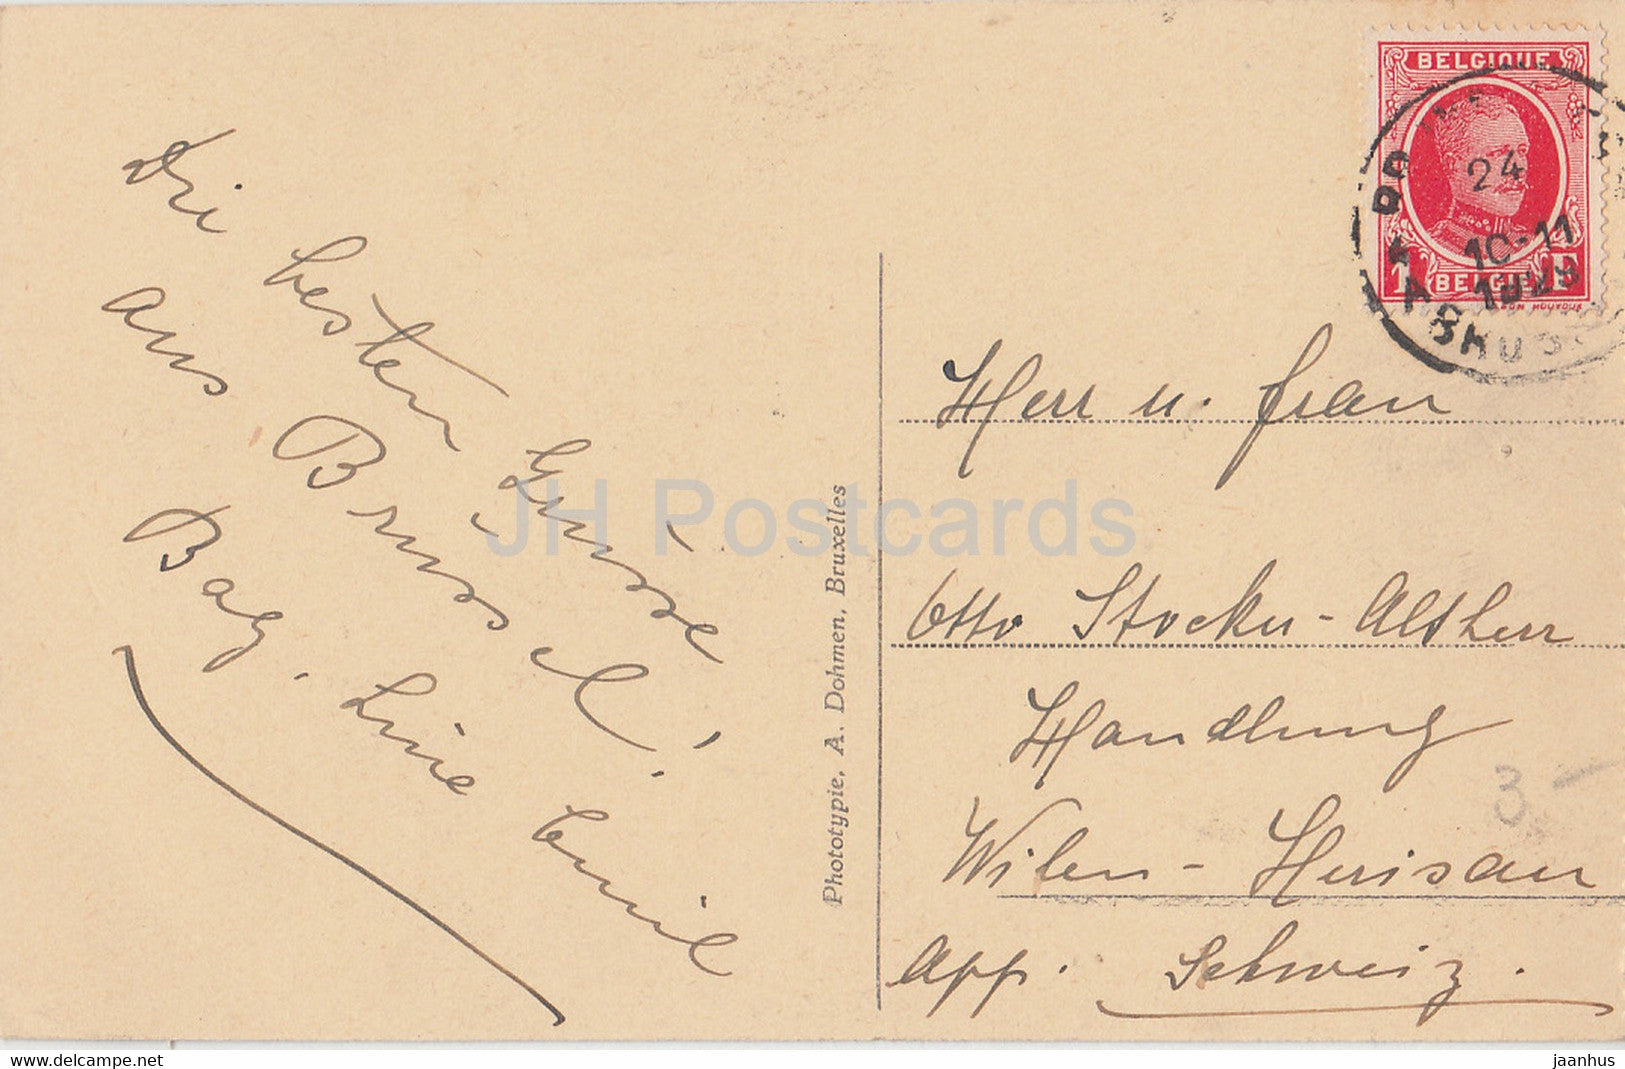 Die besten Grüsse
aus Brussel!
Bag. Line Emil
Phototypie, A. Dohmen, Bruxelles
BELGIQUE
24
10-11
1929
1F
BELGIE
Herr u. Frau
Otto Stocker-Altherr
Handlung
Wilen - Herisau
App. Schweiz.
3.-
JH Postcards
delcampe.net
jaanhus